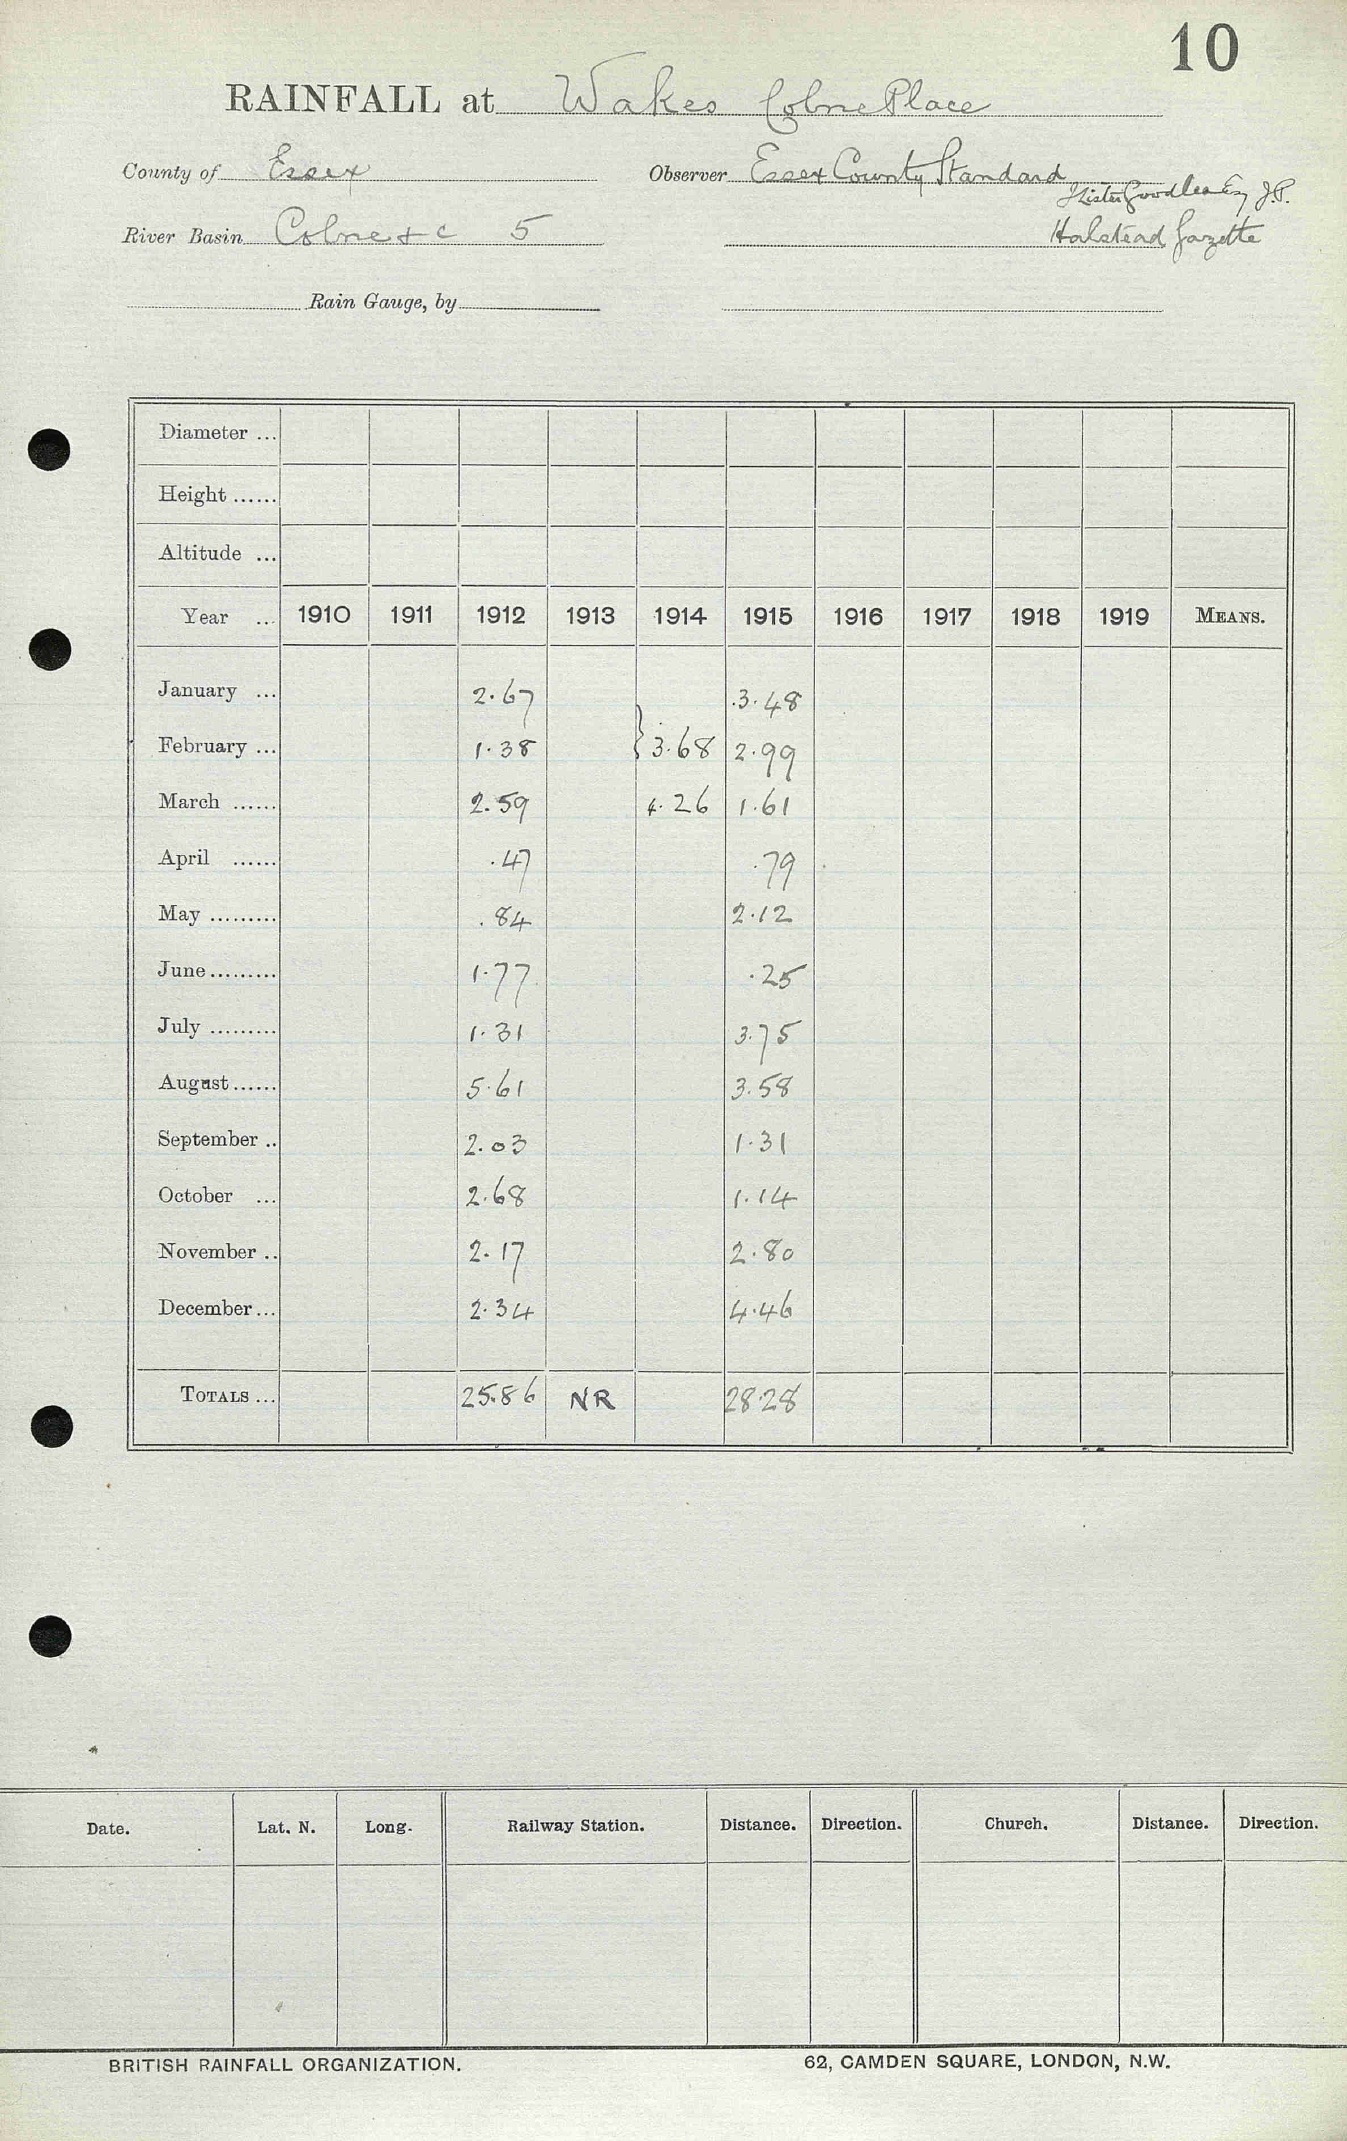 10
RAINFALL at Wakes Colne Place
County of Essex Observer Essex County Standard
J.P.
River Basin Colne & c 5 Halstead Gazette
Rain Gauge, by
Diameter ...
Height ......
Altitude ...
Year ... 1910 1911 1912 1913 1914 1915 1916 1917 1918 1919 MEANS.
January ... 2.67 3.48
February ... 1.38 } 3.68 2.99
March ...... 2.59 4.26 1.61
April ...... .47 .79
May ......... .84 2.12
June ......... 1.77 .25
July ......... 1.31 3.75
August ...... 5.61 3.58
September .. 2.03 1.31
October ... 2.68 1.14
November .. 2.17 2.80
December ... 2.34 4.46
TOTALS ... 25.86 NR 28.28
Date. Lat. N. Long. Railway Station. Distance. Direction. Church. Distance. Direction.
BRITISH RAINFALL ORGANIZATION. 62, CAMDEN SQUARE, LONDON, N.W.